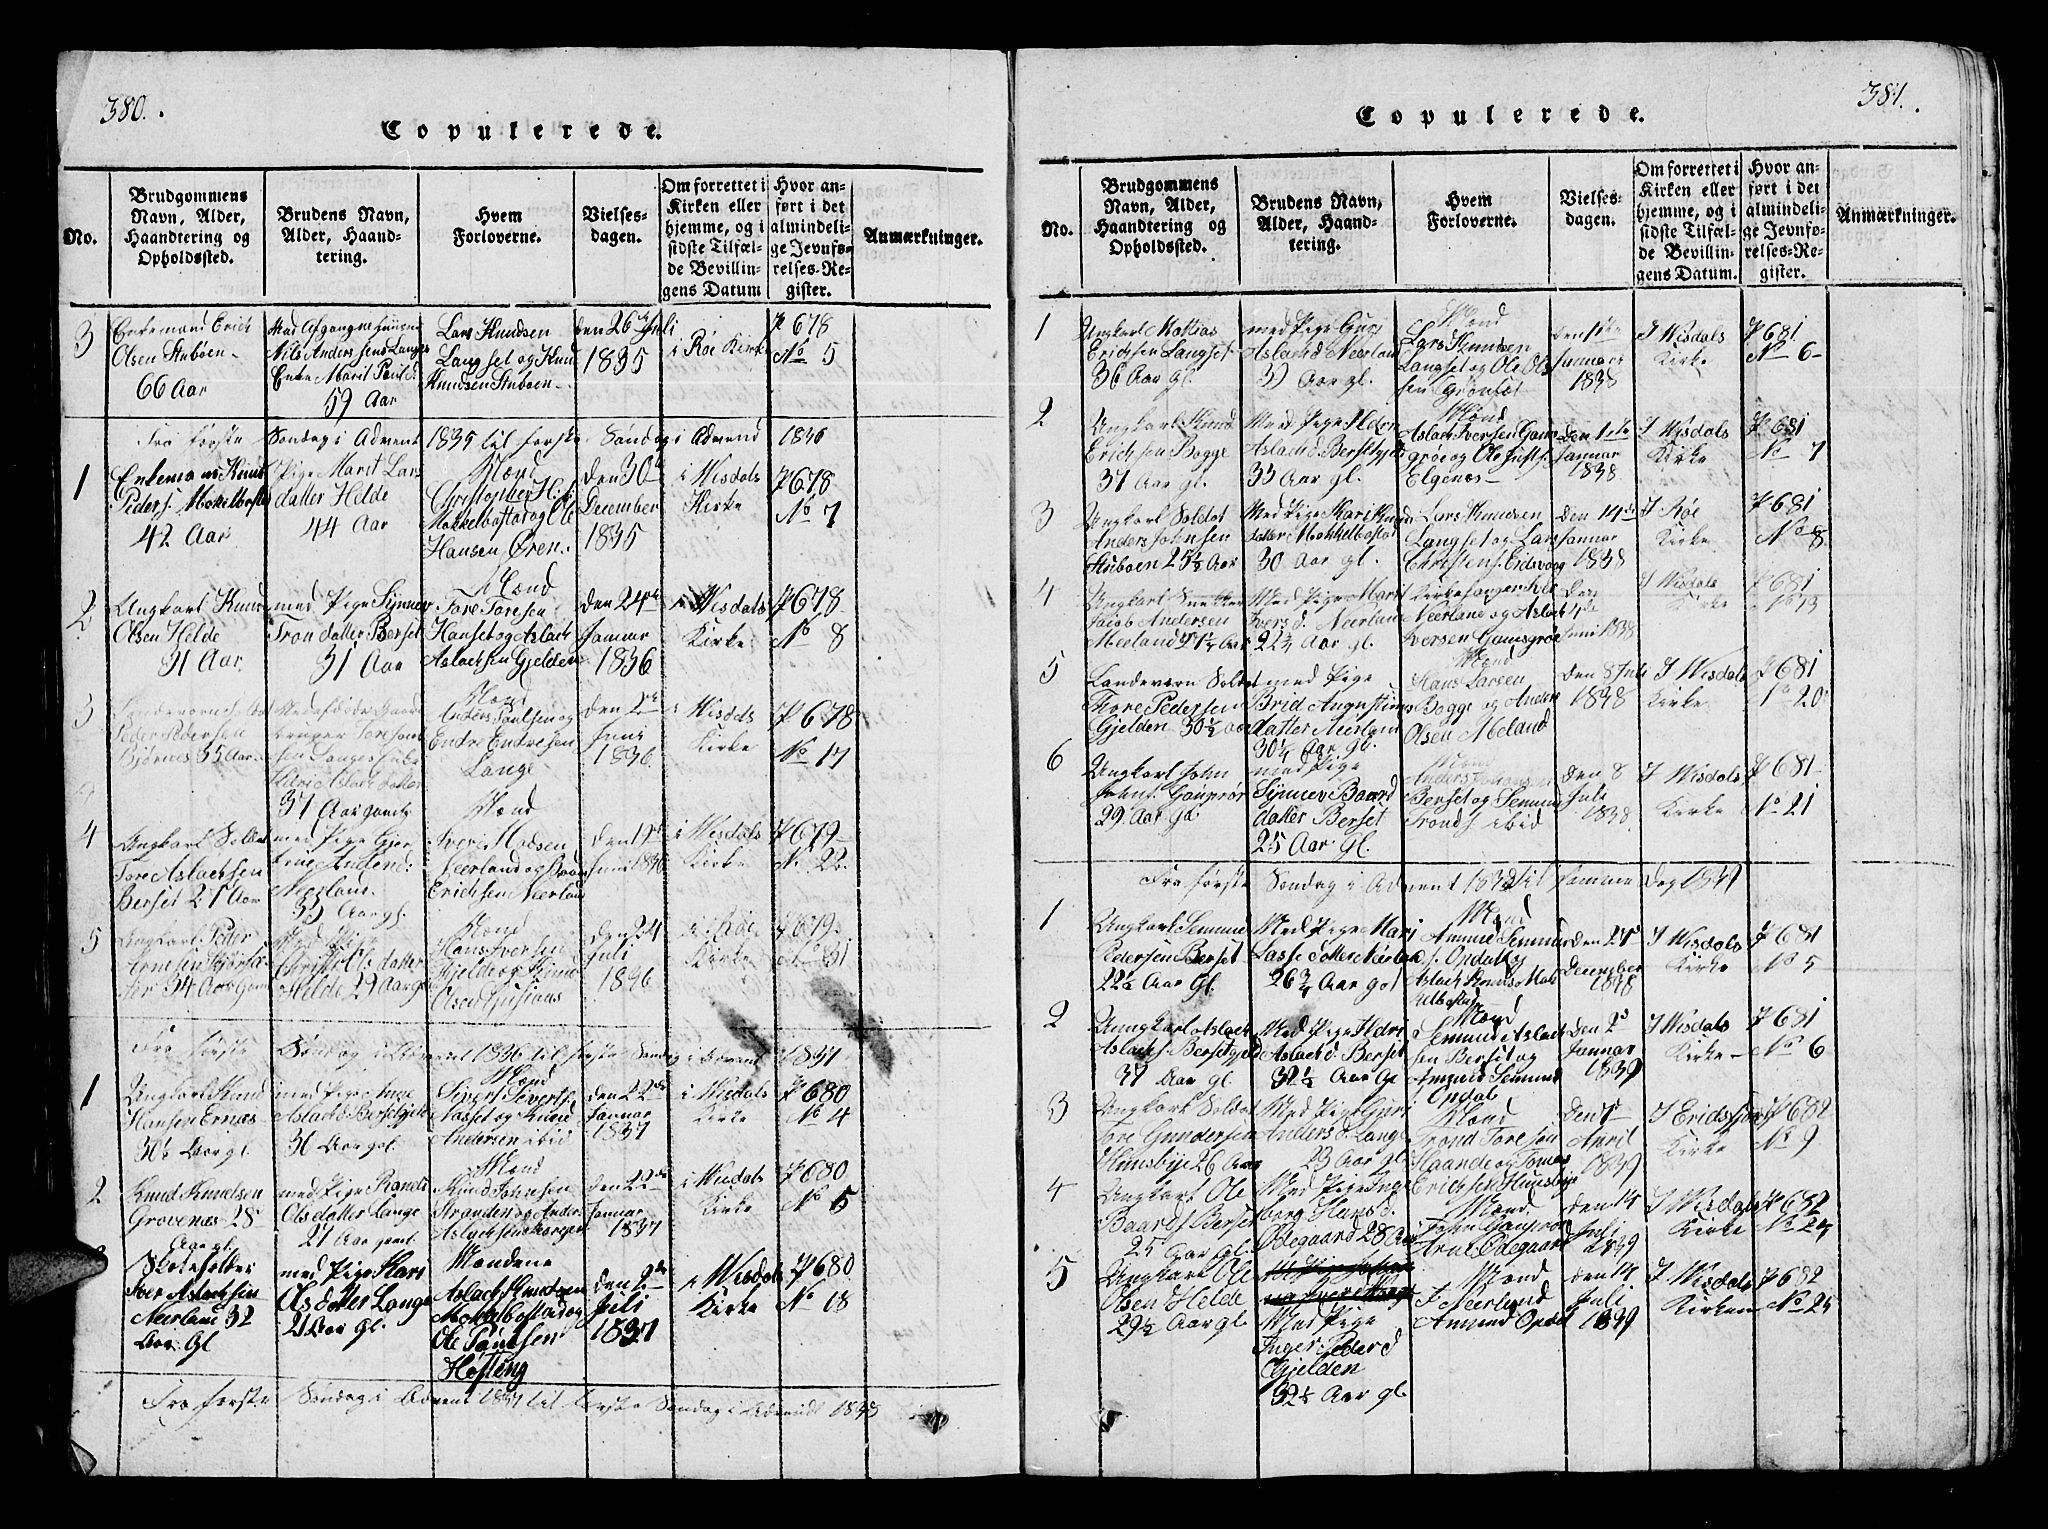 380.
Copulerede.
No.
Brudgommens Navn, Alder, Haandtering og Opholdssted.
Brudens Navn, Alder, Haandtering.
Hvem Forloverne.
Vielsesdagen.
Om forrettet i Kirken eller hjemme, og i sidste Tilfælde Bevillingens Datum
Hvor anført i det almindelige Jevnførelses-Register.
Anmærkninger.
3
Enkemand Erich
Olsen Stuboen
66 Aar
Med Afgangne
Nils Andersens Lange
Enke Marit Pouls d.
59 Aar
Lars Knudsen
Langset og Knud
Knudsen Stuboen
den 26 Juli
1835
i Röe Kirke
P 678
No 5
Fra förste Söndag i Advent 1835 til förste Söndag i Advend 1836
1
Enkemand Knud
Peders. Mokkelbostad
42 Aar
Pige Marit Lars
datter Helde
44 Aar
Mænd
Christopher H.
Mokkelbostad og Ole
Hansen Ören
den 30
December
1835
i Wisdals
Kirke
P 678
No 7
2
Ungkarl Knud
Olsen Helde
31 Aar
med Pige Synnev
Tron datter Berset
31 Aar
Mænd
Tore Toresen
Hanset og Aslach
Aslachsen Gjelden
den 24
Januar
1836
i Wisdals
Kirke
P 678
No 8
3
Peder Pedersen
Björnes 35 Aar
Aslaks datter
37 Aar
Mænd
Anders Paulsen og
Endre Endresen
Lange
den 2
Juni
1836
i Wisdals
Kirke
P 678
No 17
4
Ungkarl Soldat
Tore Aslachsen
Berset 27 Aar
med Pige
Neerland
33 Aar gl.
Mænd
Iver Madsen
Neerland og
Erichsen Neerland
den 19
Juni 1836
i Wisdals
Kirke
P 679
No 22
5
Ungkarl Peder
Arnesen
34 Aar
Med Pige
Christi Ols datter
Helde 29 Aar gl
Mænd
Hans Iversen
Gjelde og Knud
Olsen
den 24
Juli
1836
i Röe
Kirke
P 679
No 31
Fra förste Söndag i Advent 1836 til förste Söndag i Advent 1837
1
Ungkarl Knud
Hansen Ernæs
30½ Aar gl.
med Pige Ane
Aslach d. Berset
36 Aar gl.
Mænd
Sivert Siverts.
Nasset og Knud
Andersen ibid
den 22
Januar
1837
i Wisdals
Kirke
P 680
No 4
2
Knud Knudsen
Grovenæs 28
Aar gl.
med Pige Randi
Ols datter Lange
27 Aar
Mænd
Knud Johnsen
Stranden og Anders
Aslachsen
den 22
Januar
1837
i Wisdals
Kirke
P 680
No 5
Skoleholder
Iver Aslachsen
Neerland 32
Aar Gl
med Pige Kari
Ols datter Lange
21 Aar Gl.
Mændene
Aslach Knudsen
Mokkelbostad og
Ole Poulsen
den 2
Juli
1837
i Wisdals
Kirke
P 680
No 18
Fra förste Söndag i Advent 1837 til förste Söndag i Advendt 1838
381.
Copulerede.
No.
Brudgommens Navn, Alder, Haandtering og Opholdssted.
Brudens Navn, Alder, Haandtering.
Hvem Forloverne.
Vielsesdagen.
Om forrettet i Kirken eller hjemme, og i sidste Tilfælde Bevillingens Datum.
Hvor anført i det almindelige Jevnførelses-Register.
Anmærkninger.
1
Ungkarl Mattias
Erichsen Langset
36 Aar gl.
med Pige Guri
Aslach d. Neerland
39 Aar gl.
Mænd
Lars Knudsen
Langset og Ole Ols
sen Grönset
den 1ste
Januar
1838
I Wisdals
Kirke
P 681
No 6
2
Ungkarl Knud
Erichsen Bogge
37 Aar gl.
Med Pige Ilden
Aslach d. Berset
33 Aar gl.
Mænd
Aslach Iversen Gams
gröe og Ole
Elgenæs
den 1ste
Januar
1838
I Wisdals
Kirke
P 681
No 7
3
Ungkarl Soldat
Anders Johnsen
Stuboen 25½ Aar
Med Pige Kari Knud
datter Mokkelbostad
30 Aar gl.
Lars Knudsen
Langset og Lars
Christens. Eidsvaag
den 14de
Januar
1838
I Röe
Kirke
P 681
No 8
4
Ungkarl
Jacob Andersen
Meeland
Med Pige Marit
Ivers d. Neerland
22½ Aar gl.
Kirkesanger
Neerland og Aslach
Iversen Gamsgröe
den 4de
Juni 1838
I Wisdals
Kirke
P 681
No 19
5
Landeværn Soldat
Thore Pedersen
Gjelden 30½ aar
med Pige
Brid Augustinus
datter Neerland
30¼ Aar gl.
Mænd
Hans Larsen
Bogge og Anders
Olsen Meland
den 8 Juli
1838
I Wisdals
Kirke
P 681
No 20
6
Ungkarl John
29 Aar gl.
med Pige
Synnev Baard
datter Berset
25 Aar Gl.
Mænd
Anders
Berset og Semund
Tronds. ibid
den 8
Juli
1838
I Wisdals
Kirke
P 681
No 21
Fra förste Söndag i Advent 1838 til samme Dag 1839
1
Ungkarl Semund
Pedersen Berset
22½ Aar Gl.
Med Pige Mari
Lasse datter Neerland
26¾ Aar gl
Mænd
Amund Semund
s. Opdal og
Aslach Knuds. Mok
kelbostad
den 27
December
1838
I Wisdals
Kirke
P 681
No 5
2
Ungkarl Aslach
Aslachs. Berset
37 Aar gl.
Med Pige Ildri
Aslach d. Berset
32½ Aar Gl
Mænd
Semund Aslach
sen Berset og
Amund Semund
Opdal
den 2
Januar
1839
I Wisdals
Kirke
P 681
No 6
3
Ungkarl Soldat
Tore Gundersen
Hunsbye 26 Aar
Med Pige Guri
Anders d. Lange
23 Aar gl.
Mænd
Trond Toresen
Haande og Tomas
Erichsen Hunsbye
den 1
April
1839
I Eridsfjord
Kirke
P 682
No 9
4
Ungkarl Ole
Baards. Berset
25 Aar Gl.
Med Pige Inge
berg Hans d.
Ödegaard 28 Aar
Mænd
John
Arne Ödegaard
den 14
Juli
1839
I Wisdals
Kirke
P 682
No 24
5
Ungkarl Ole
Olsen Helde
29½ Aar gl
Med Pige
Inger Peder d
Gjelden
32½ Aar gl.
Mænd
I. Neerland
Amund Opdal
den 14
Juli
1839
I Wisdals
Kirken
P 682
No 25